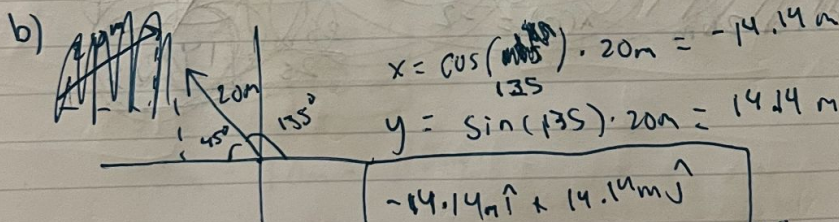 b)
20m
45°
135°
x = cos(135) · 20m = -14.14 m
y = sin(135) · 20m = 14.14 m
-14.14m î + 14.14m ĵ